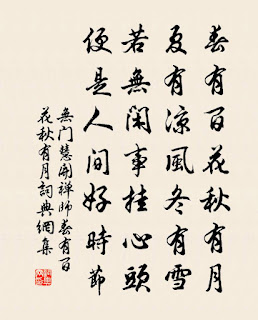 春有百花秋有月
夏有凉風冬有雪
若無閑事挂心頭
便是人间好時節
無门慧開禅師春有百
花秋有月詞典網集